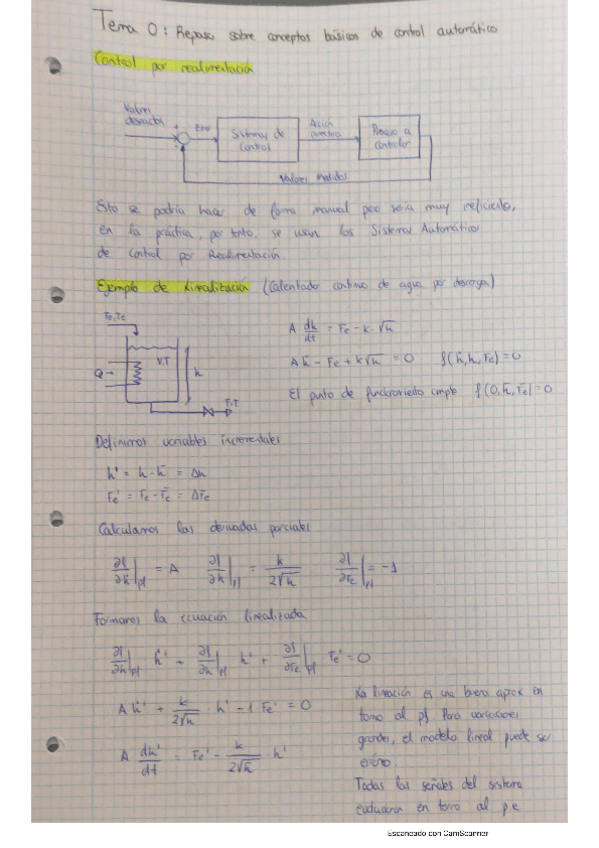 Tema 0: Repaso sobre conceptos básicos de control automático
Control por realimentación
Valores
deseados
+
-
Error
Sistema de
control
Acción
correctora
Proceso a
controlar
Valores Medidos
Esto se podría hacer de forma manual pero sería muy ineficiente,
en la práctica, por tanto, se usan los Sistemas Automáticos
de Control por Realimentación.
Ejemplo de Linealización (Calentador continuo de agua por descarga)
Fe, Te
V,T
h
Q→
F,T
A dh/dt = Fe - k·√h
Aḣ - Fe + k√h = 0 f(ḣ,h,Fe) = 0
El punto de funcionamiento cumple f(0,h̄,F̄e) = 0
Definimos variables incrementales
h' = h - h̄ = Δh
Fe' = Fe - F̄e = ΔFe
Calculamos las derivadas parciales
∂f/∂ḣ|pf = A ∂f/∂h|pf = k/2√h̄ ∂f/∂Fe|pf = -1
Formamos la ecuación linealizada
∂f/∂ḣ|pf ḣ' + ∂f/∂h|pf h' + ∂f/∂Fe|pf Fe' = 0
Aḣ' + k/2√h̄ h' - 1 Fe' = 0
A dh'/dt = Fe' - k/2√h̄ h'
La lineación es una buena aprox en
torno al pf. Para variaciones
grandes, el modelo lineal puede ser
erróneo.
Todas las señales del sistema
evolucionan en torno al p.e
Escaneado con CamScanner